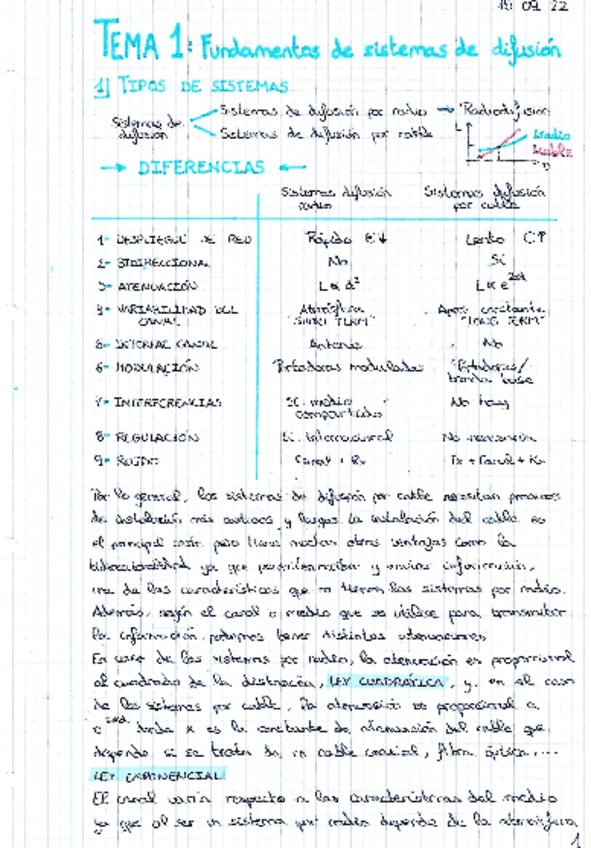 19 09 22
TEMA 1: Fundamentos de sistemas de difusión
1) TIPOS DE SISTEMAS
Sistemas de difusión
Sistemas de difusión por radio → "Radiodifusión
Sistemas de difusión por cable
L
Lradio
Lcable
→ DIFERENCIAS ←
Sistemas difusión radio
Sistemas difusión por cable
1- DESPLIEGUE DE RED Rápido €↓ Lento €↑
2- BIDIRECCIONAL No Sí
3- ATENUACIÓN L∝d² L∝e
4- VARIABILIDAD DEL CANAL Atmósfera "SHORT TERM" constante "LONG TERM"
5- CANAL Antena No
6- MODULACIÓN Portadoras moduladas Portadoras/ banda base
7- INTERFERENCIAS Sí. medio compartido No hay
8- REGULACIÓN Sí. internacional No necesaria
9- RUIDO Canal + Rx Tx + Canal + Rx
Por lo general, los sistemas de difusión por cable necesitan procesos
de instalación más costosos y largos. La instalación del cable es
el principal coste pero tiene muchas otras ventajas como la
bidireccionalidad ya que recibir y enviar información,
una de las características que no tienen los sistemas por radio.
Además, según el canal o medio que se utilice para transmitir
la información, podemos tener distintas atenuaciones
En caso de los sistemas por radio, la atenuación es proporcional
al cuadrado de la distancia, LEY CUADRÁTICA, y, en el caso
de los sistemas por cable, la atenuación es proporcional a
e donde α es la constante de atenuación del cable que
depende si se trata de un cable coaxial, fibra óptica,...
LEY EXPONENCIAL
El canal varía respecto a las características del medio
ya que al ser un sistema por radio depende de la atmósfera
1